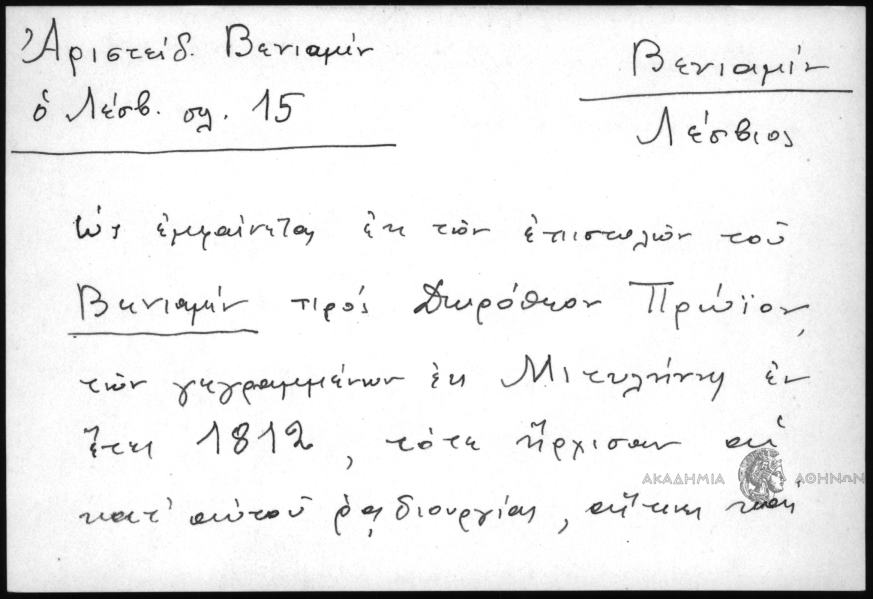 Ἀριστείδ. Βενιαμίν
ὁ Λέσβ. σλ. 15
Βενιαμίν
Λέσβιος
Ὡς ἐμφαίνεται ἐκ τῶν ἐπιστολῶν τοῦ
Βενιαμίν πρός Δωρόθεον Πρώϊον,
τῶν γεγραμμένων ἐκ Μιτυλήνης ἐν
ἔτει 1812, τότε ἤρχισαν αἱ
ΑΚΑΔΗΜΙΑ ΑΘΗΝΩΝ
κατ' αὐτοῦ ῥᾳδιουργίαι, αἵτινες καί